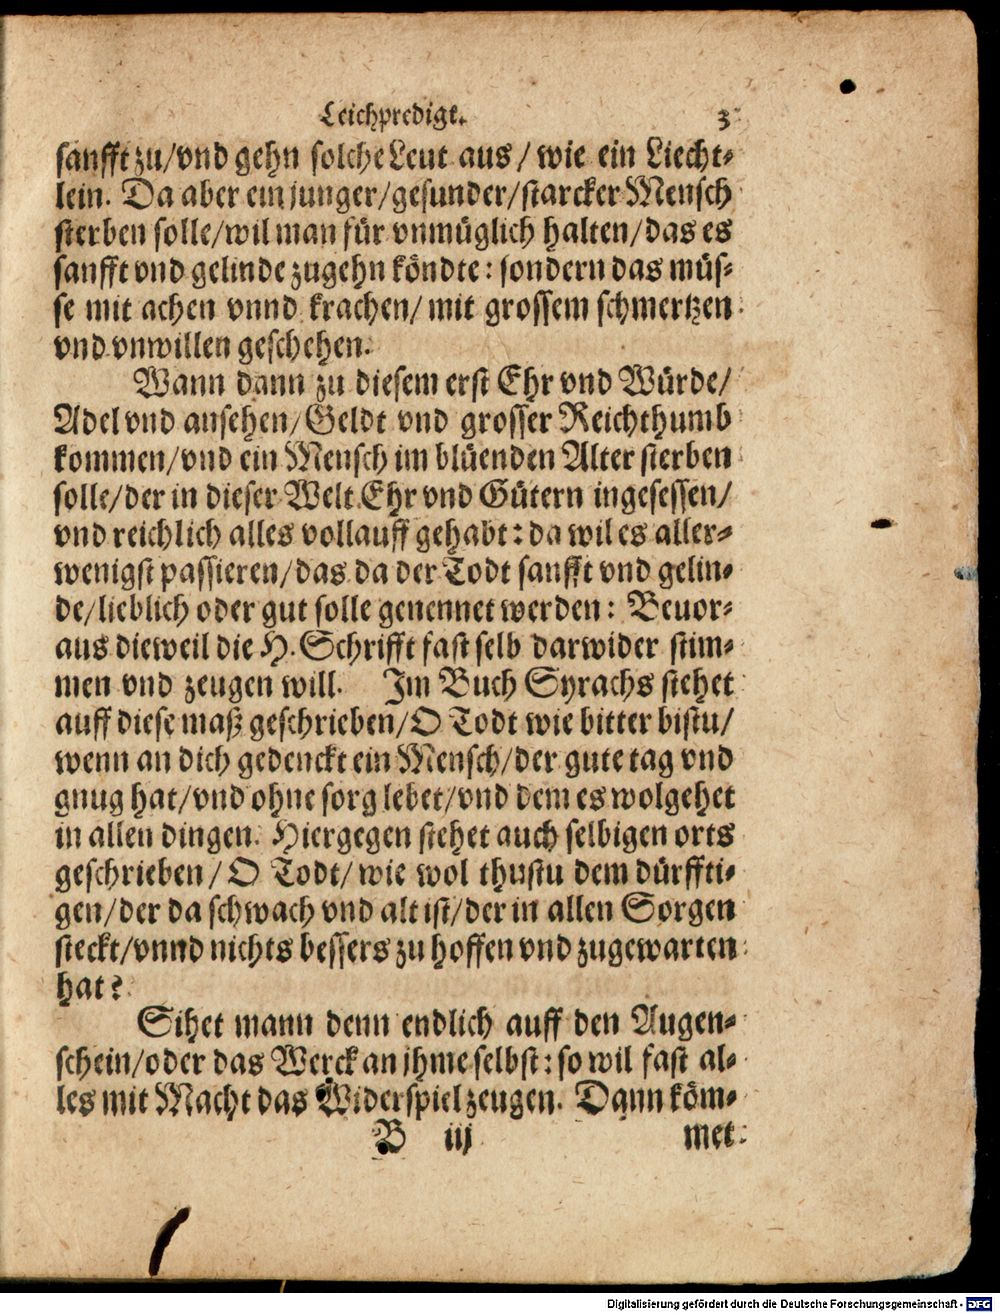 Leichpredigt. 3
sanfft zu/vnd gehn solche Leut aus/ wie ein Liecht-
lein. Da aber ein junger/gesunder/starcker Mensch
sterben solle/wil man für vnmüglich halten/das es
sanfft vnd gelinde zugehn köndte: sondern das müs-
se mit achen vnnd krachen/ mit grossem schmertzen
vnd vnwillen geschehen.
Wann dann zu diesem erst Ehr vnd Würde/
Adel vnd ansehen/Geldt vnd grosser Reichthumb
kommen/vnd ein Mensch im blüenden Alter sterben
solle/der in dieser Welt Ehr vnd Gütern ingesessen/
vnd reichlich alles vollauff gehabt: da wil es aller-
wenigst passieren/das da der Todt sanfft vnd gelin-
de/lieblich oder gut solle genennet werden: Beuor-
aus dieweil die H. Schrifft fast selb darwider stim-
men vnd zeugen will. Im Buch Syrachs stehet
auff diese maß geschrieben/O Todt wie bitter bistu/
wenn an dich gedenckt ein Mensch/der gute tag vnd
gnug hat/vnd ohne sorg lebet/vnd dem es wolgehet
in allen dingen. Hiergegen stehet auch selbigen orts
geschrieben/ O Todt/ wie wol thustu dem dürffti-
gen/der da schwach vnd alt ist/der in allen Sorgen
steckt/vnnd nichts bessers zu hoffen vnd zugewarten
hat?
Sihet mann denn endlich auff den Augen-
schein/oder das Werck an jhme selbst: so wil fast al-
les mit Macht das Widerspiel zeugen. Dann köm-
B iij met
Digitalisierung gefördert durch die Deutsche Forschungsgemeinschaft - DFG